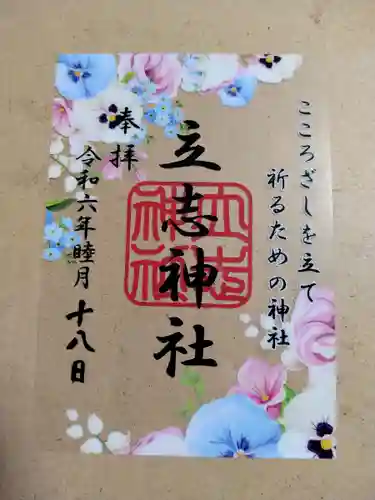 こころざしを立て
祈るための神社
立志神社
奉拝
令和六年睦月十八日
立志神社